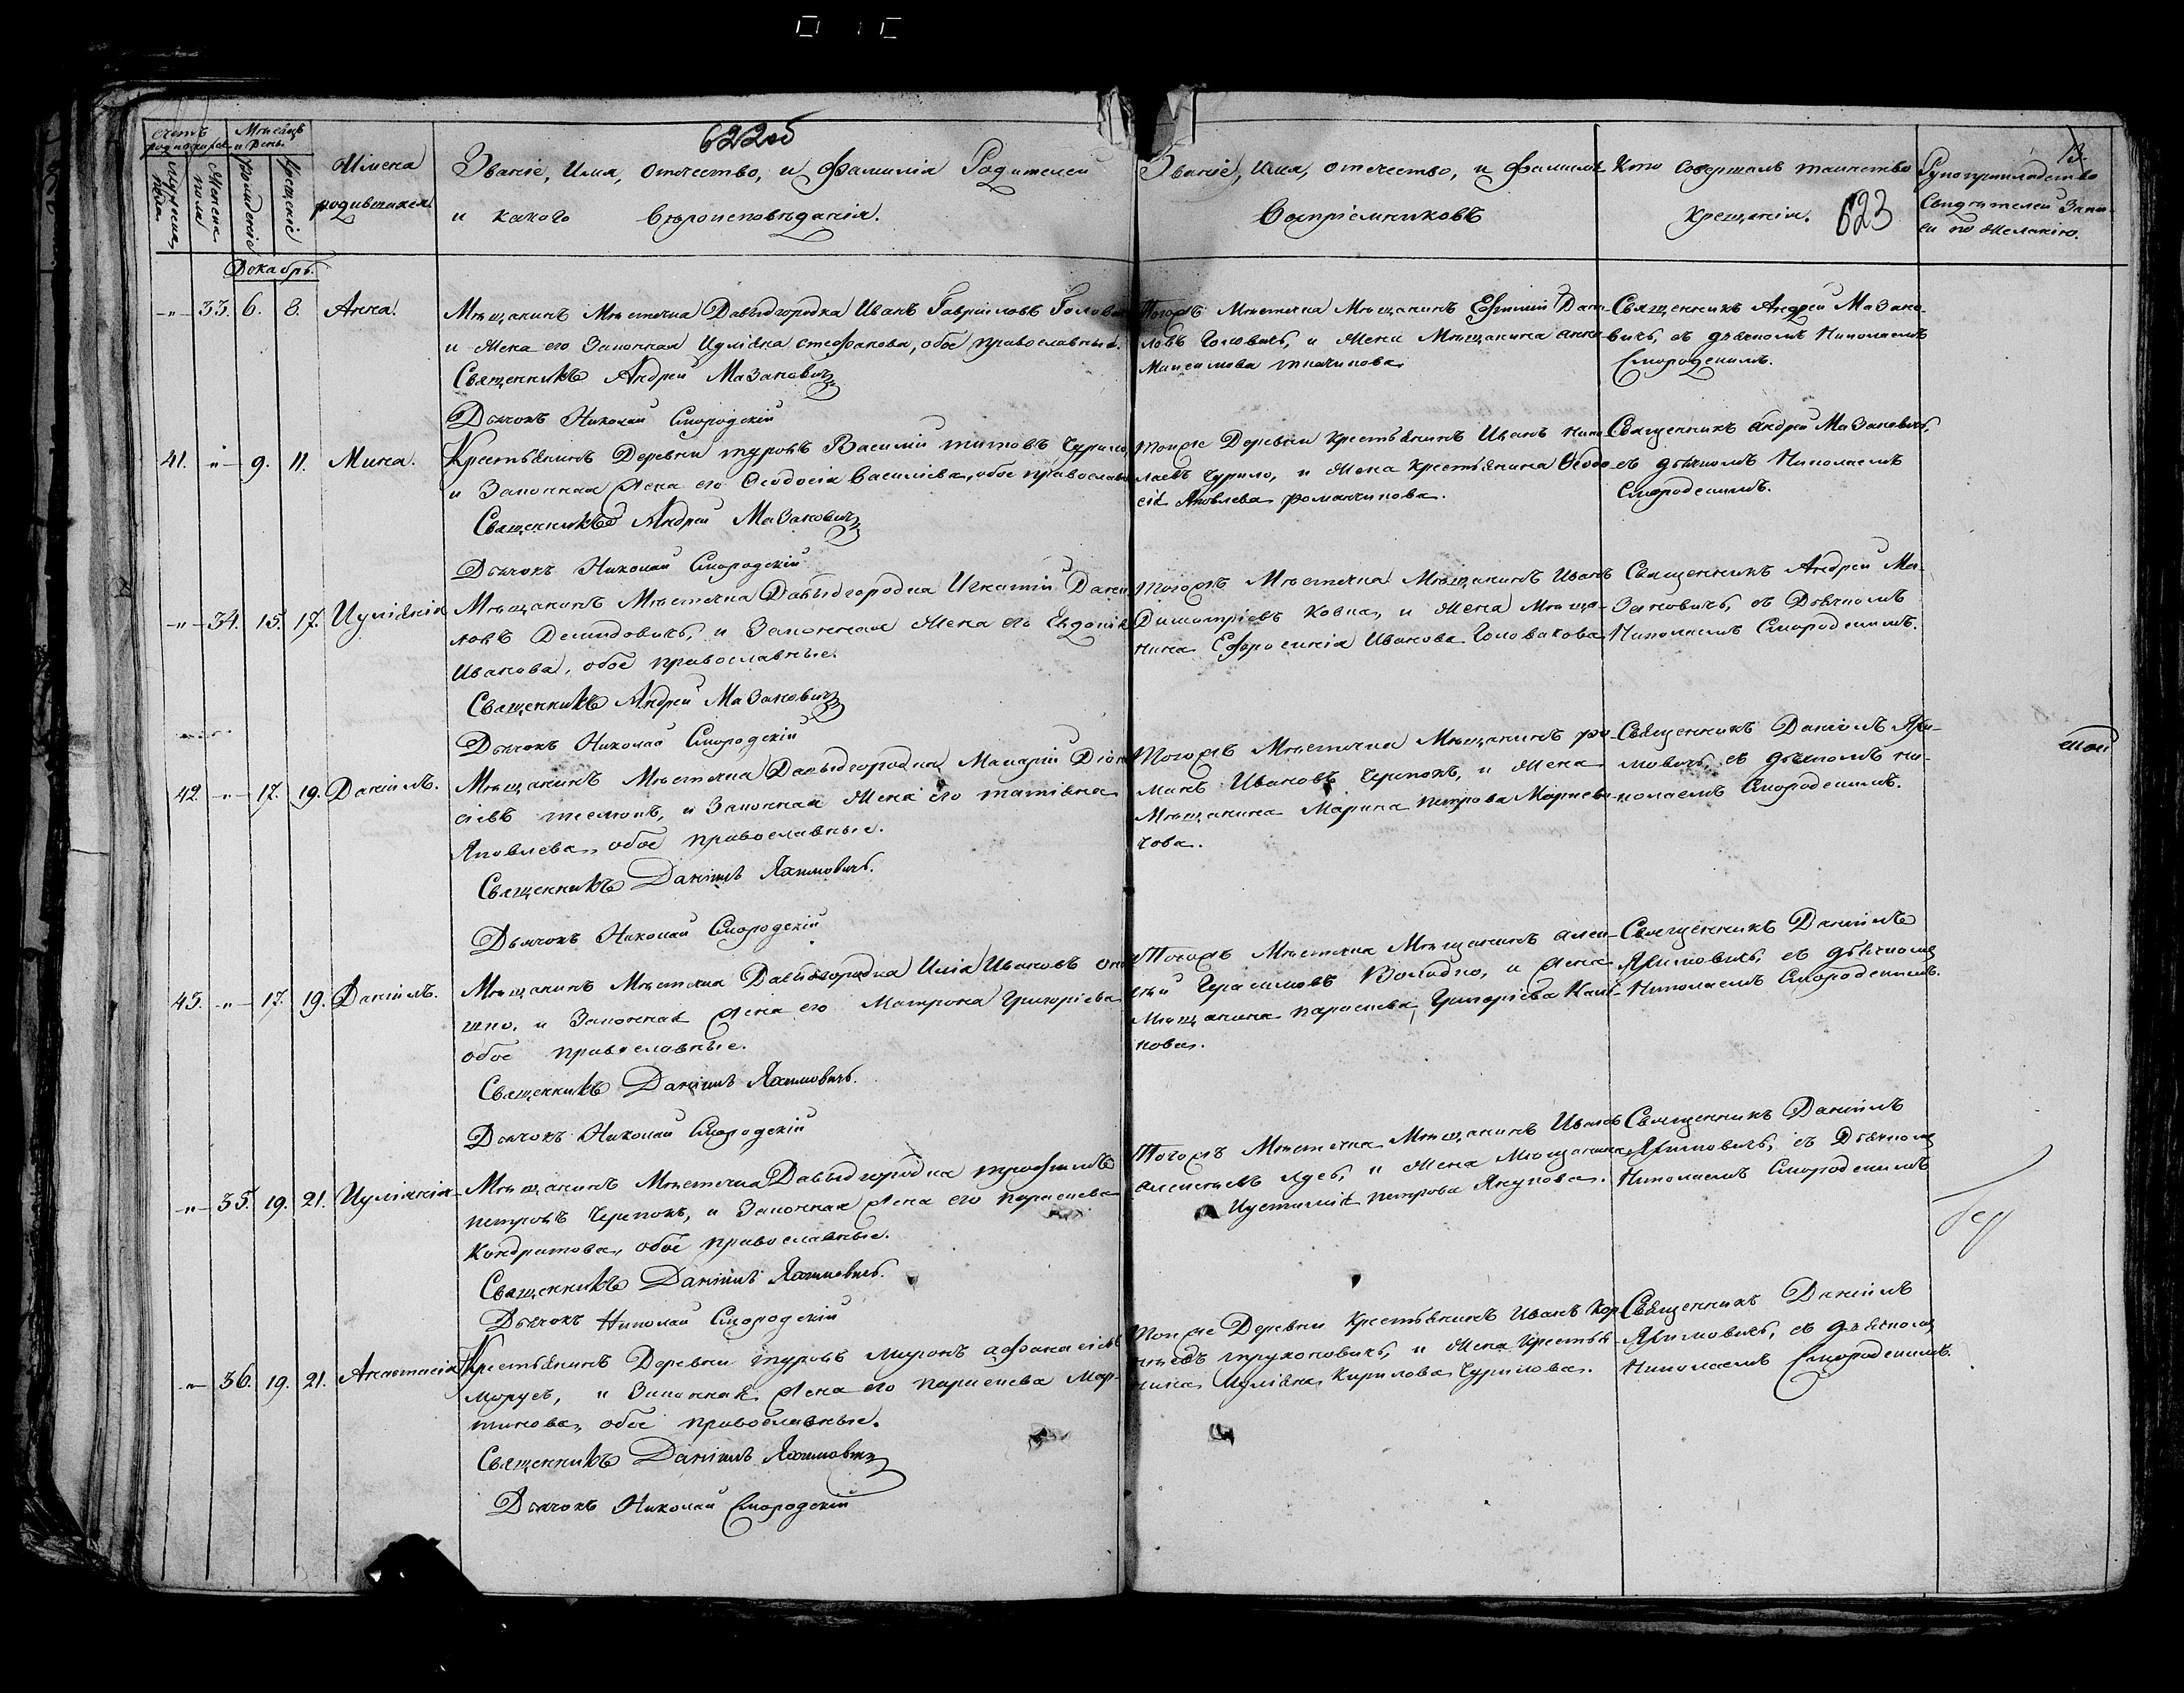 622об
Счетъ
родившихся
Мѣсяцъ
и день.
Мужеска
пола
Женска
пола
Рожденіе
Крещеніе
Имена
родившихся.
Званіе, Имя, Отчество, и Фамилія Родителей
и какого вѣроисповѣданія.
Званіе, имя, отчество, и Фамилія
Воспріемниковъ
Кто совершалъ таинство
крещенія.
623
13.
Рукоприкладство
Свидѣтелей запи-
си по желанію.
Декабрь.
-"- 33. 6. 8. Анна.
Мѣщанинъ Мѣстечка Давыдгородка Иванъ Гавріиловъ
и жена его Законная Иуліяна Стефанова, обое православные.
Священникъ Андрей Мазановичъ
Дьячокъ Николай Смородскій
Тогожъ Мѣстечка Мѣщанинъ Ефимій Дани-
ловъ Головачь, и жена Мѣщанина Анна
Максимова
Священникъ Андрей Мазано-
вичь, съ дьячкомъ Николаемъ
Смородскимъ.
41. -"- 9. 11. Мина.
Крестьянинъ Деревни Туровъ Василій Титовъ Чурило,
и Законная жена его Феодосія Василіева, обое православ
Священникъ Андрей Мазановичъ
Дьячокъ Николай Смородскій
Тойже Деревни Крестьянинъ Иванъ Нико
лаевъ Чурило, и жена Крестьянина Феодо-
сія Яковлева Романчукова.
Священникъ Андрей Мазановичь,
съ дьячкомъ Николаемъ
Смородскимъ.
-"- 34. 15. 17. Иуліянія
Мѣщанинъ Мѣстечка Давыдгородка Игнатій Дани
ловъ Демидовичь, и Законная жена его Евдокія
Иванова, обое православные.
Священникъ Андрей Мазановичъ
Дьячокъ Николай Смородскій
Тогожъ Мѣстечка Мѣщанинъ Иванъ
Димитріевъ Ковка, и жена Мѣща-
нина Ефросинія Иванова Головакова
Священникъ Андрей Ма-
зановичь, съ Дьячкомъ
Николаемъ Смородскимъ.
42. -"- 17. 19. Даніилъ.
Мѣщанинъ Мѣстечка Давыдгородка Макарій Діон
сіевъ и Законная жена его Татіяна
Яковлева, обое православные.
Священникъ Даніилъ Якимовичь.
Дьячокъ Николай Смородскій
Тогожъ Мѣстечка Мѣщанинъ Ро-
манъ Ивановъ Черпокъ, и жена
Мѣщанина Марина Петрова
чова.
Священникъ Даніилъ Яки-
мовичь, съ дьячкомъ Ни-
колаемъ Смородскимъ.
45. -"- 17. 19. Даніилъ.
Мѣщанинъ Мѣстечка Давыдгородка Илія Ивановъ
и Законная жена его Матрона Григоріева
обое православные.
Священникъ Даніилъ Якимовичь.
Дьячокъ Николай Смородскій
Тогожъ Мѣстечка Мѣщанинъ Алек-
сѣй Герасимовъ Володко, и жена
Мѣщанина Параскева Григоріева
кова.
Священникъ Даніилъ
Якимовичь, съ дьячкомъ
Николаемъ Смородскимъ.
-"- 35. 19. 21. Иуліянія
Мѣщанинъ Мѣстечка Давыдгородка Трофимъ
Петровъ Черпокъ, и Законная жена его Параскева
Кондратова, обое православные.
Священникъ Даніилъ Якимовичь.
Дьячокъ Николай Смородскій
Тогожъ Мѣстечка Мѣщанинъ Иванъ
Алексѣевъ и жена Мѣщанина
Иустинія Петрова Якупова.
Священникъ Даніилъ
Якимовичь, съ Дьячкомъ
Николаемъ Смородскимъ
-"- 36. 19. 21. Анастасія
Крестьянинъ Деревни Туровъ Миронъ Афанасіевъ
Морусъ, и Законная жена его Параскева Мар-
тинова, обое православные.
Священникъ Даніилъ Якимовичъ
Дьячокъ Николай Смородскій
Тойже Деревни Крестьянинъ Иванъ Кор
нѣевъ Трухоновичь, и жена Крестья-
нина Иуліяна Кирилова Чурилова.
Священникъ Даніилъ
Якимовичь, съ дьячкомъ
Николаемъ Смородскимъ.